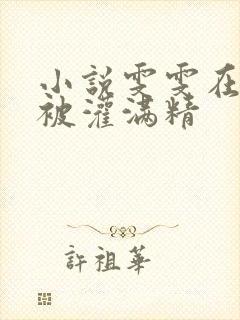 小說雯雯在
被灌滿精
許祖華